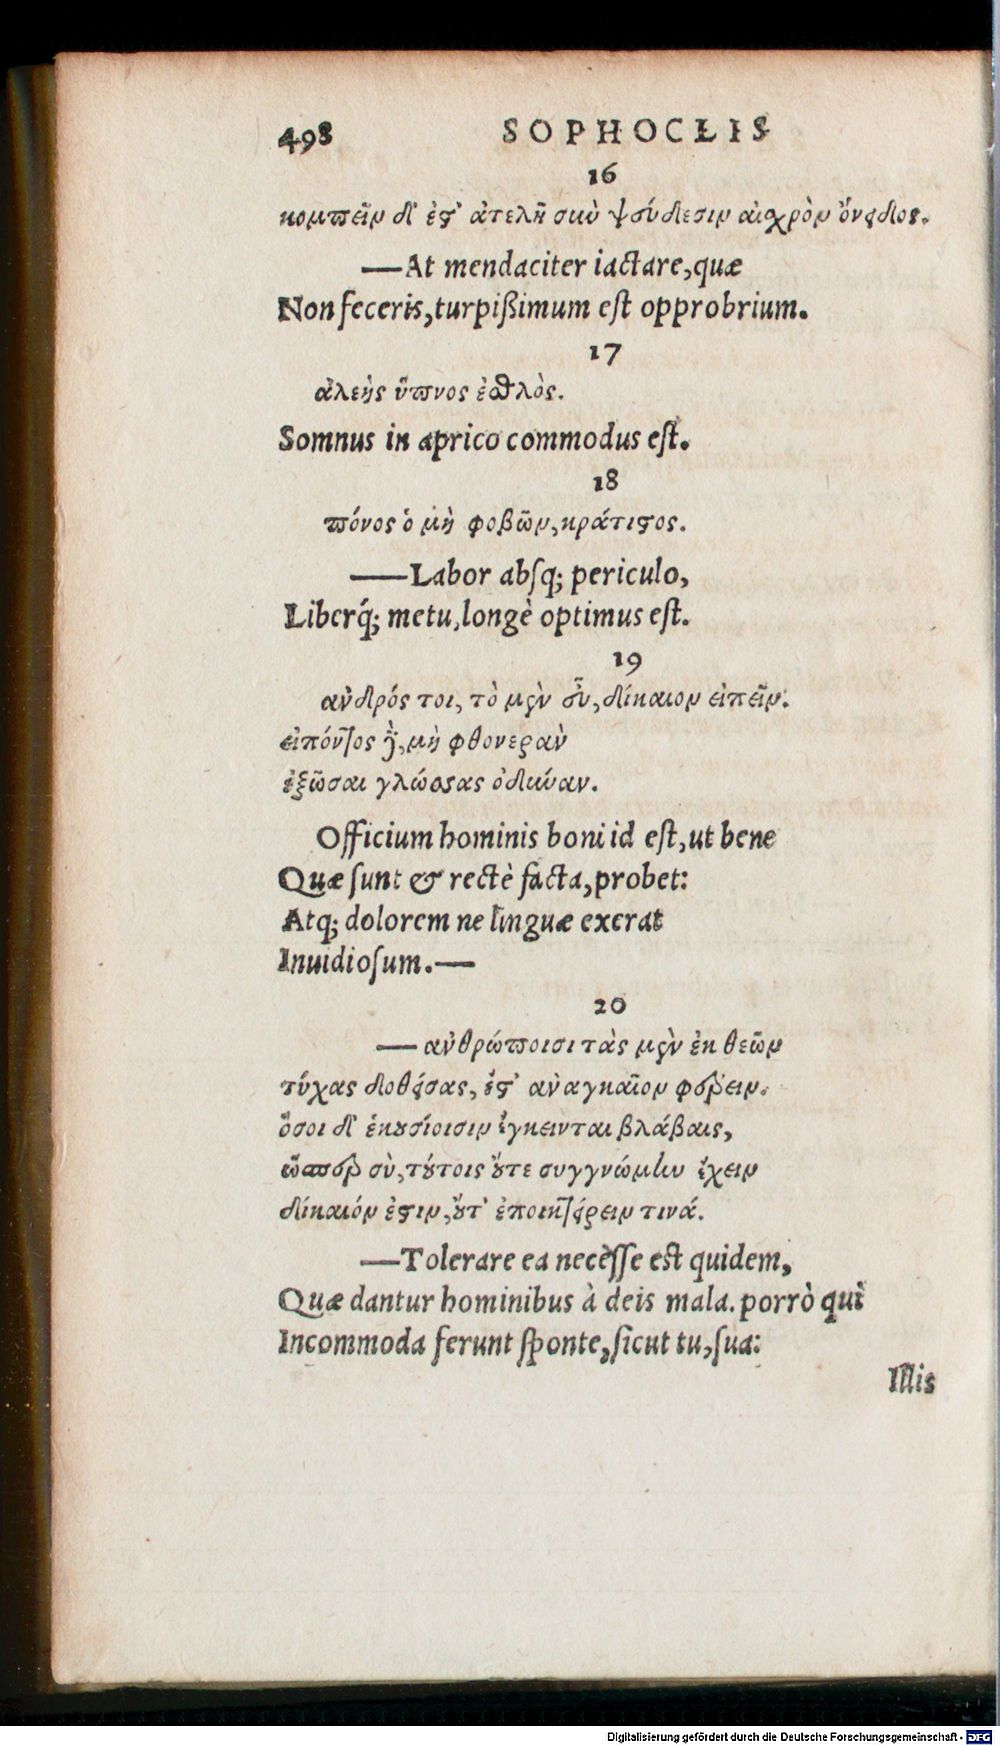 498 SOPHOCLIS
16
κομπεῖν δ' ἔςτ' ἀτελῆ σὺν ψεύδεσιν αἰσχρὸν ὄνειδος.
—At mendaciter iactare, quæ
Non feceris, turpißimum est opprobrium.
17
ἀλεὴς ὕπνος ἐσθλὸς.
Somnus in aprico commodus est.
18
πόνος ὁ μὴ φοβῶν, κράτιστος.
—Labor absq; periculo,
Liberq́; metu, longè optimus est.
19
ἀνδρός τοι, τὸ μὲν εὖ, δίκαιον εἰπεῖν.
εἰπόντος δὲ, μὴ φθονερὰν
ἐξῶσαι γλώσσας ὀδύναν.
Officium hominis boni id est, ut bene
Quæ sunt & rectè facta, probet:
Atq; dolorem ne linguæ exerat
Inuidiosum.—
20
—ἀνθρώποισι τὰς μὲν ἐκ θεῶν
τύχας δοθείσας, ἔστ' ἀναγκαῖον φέρειν.
ὅσοι δ' ἑκουσίοισιν ἔγκεινται βλάβαις,
ὥσπερ σὺ, τούτοις οὔτε συγγνώμην ἔχειν
δίκαιόν ἐστιν, οὔτ' ἐποικτείρειν τινά.
—Tolerare ea necèsse est quidem,
Quæ dantur hominibus à deis mala. porrò qui
Incommoda ferunt sponte, sicut tu, sua:
Illis
Digitalisierung gefördert durch die Deutsche Forschungsgemeinschaft - DFG